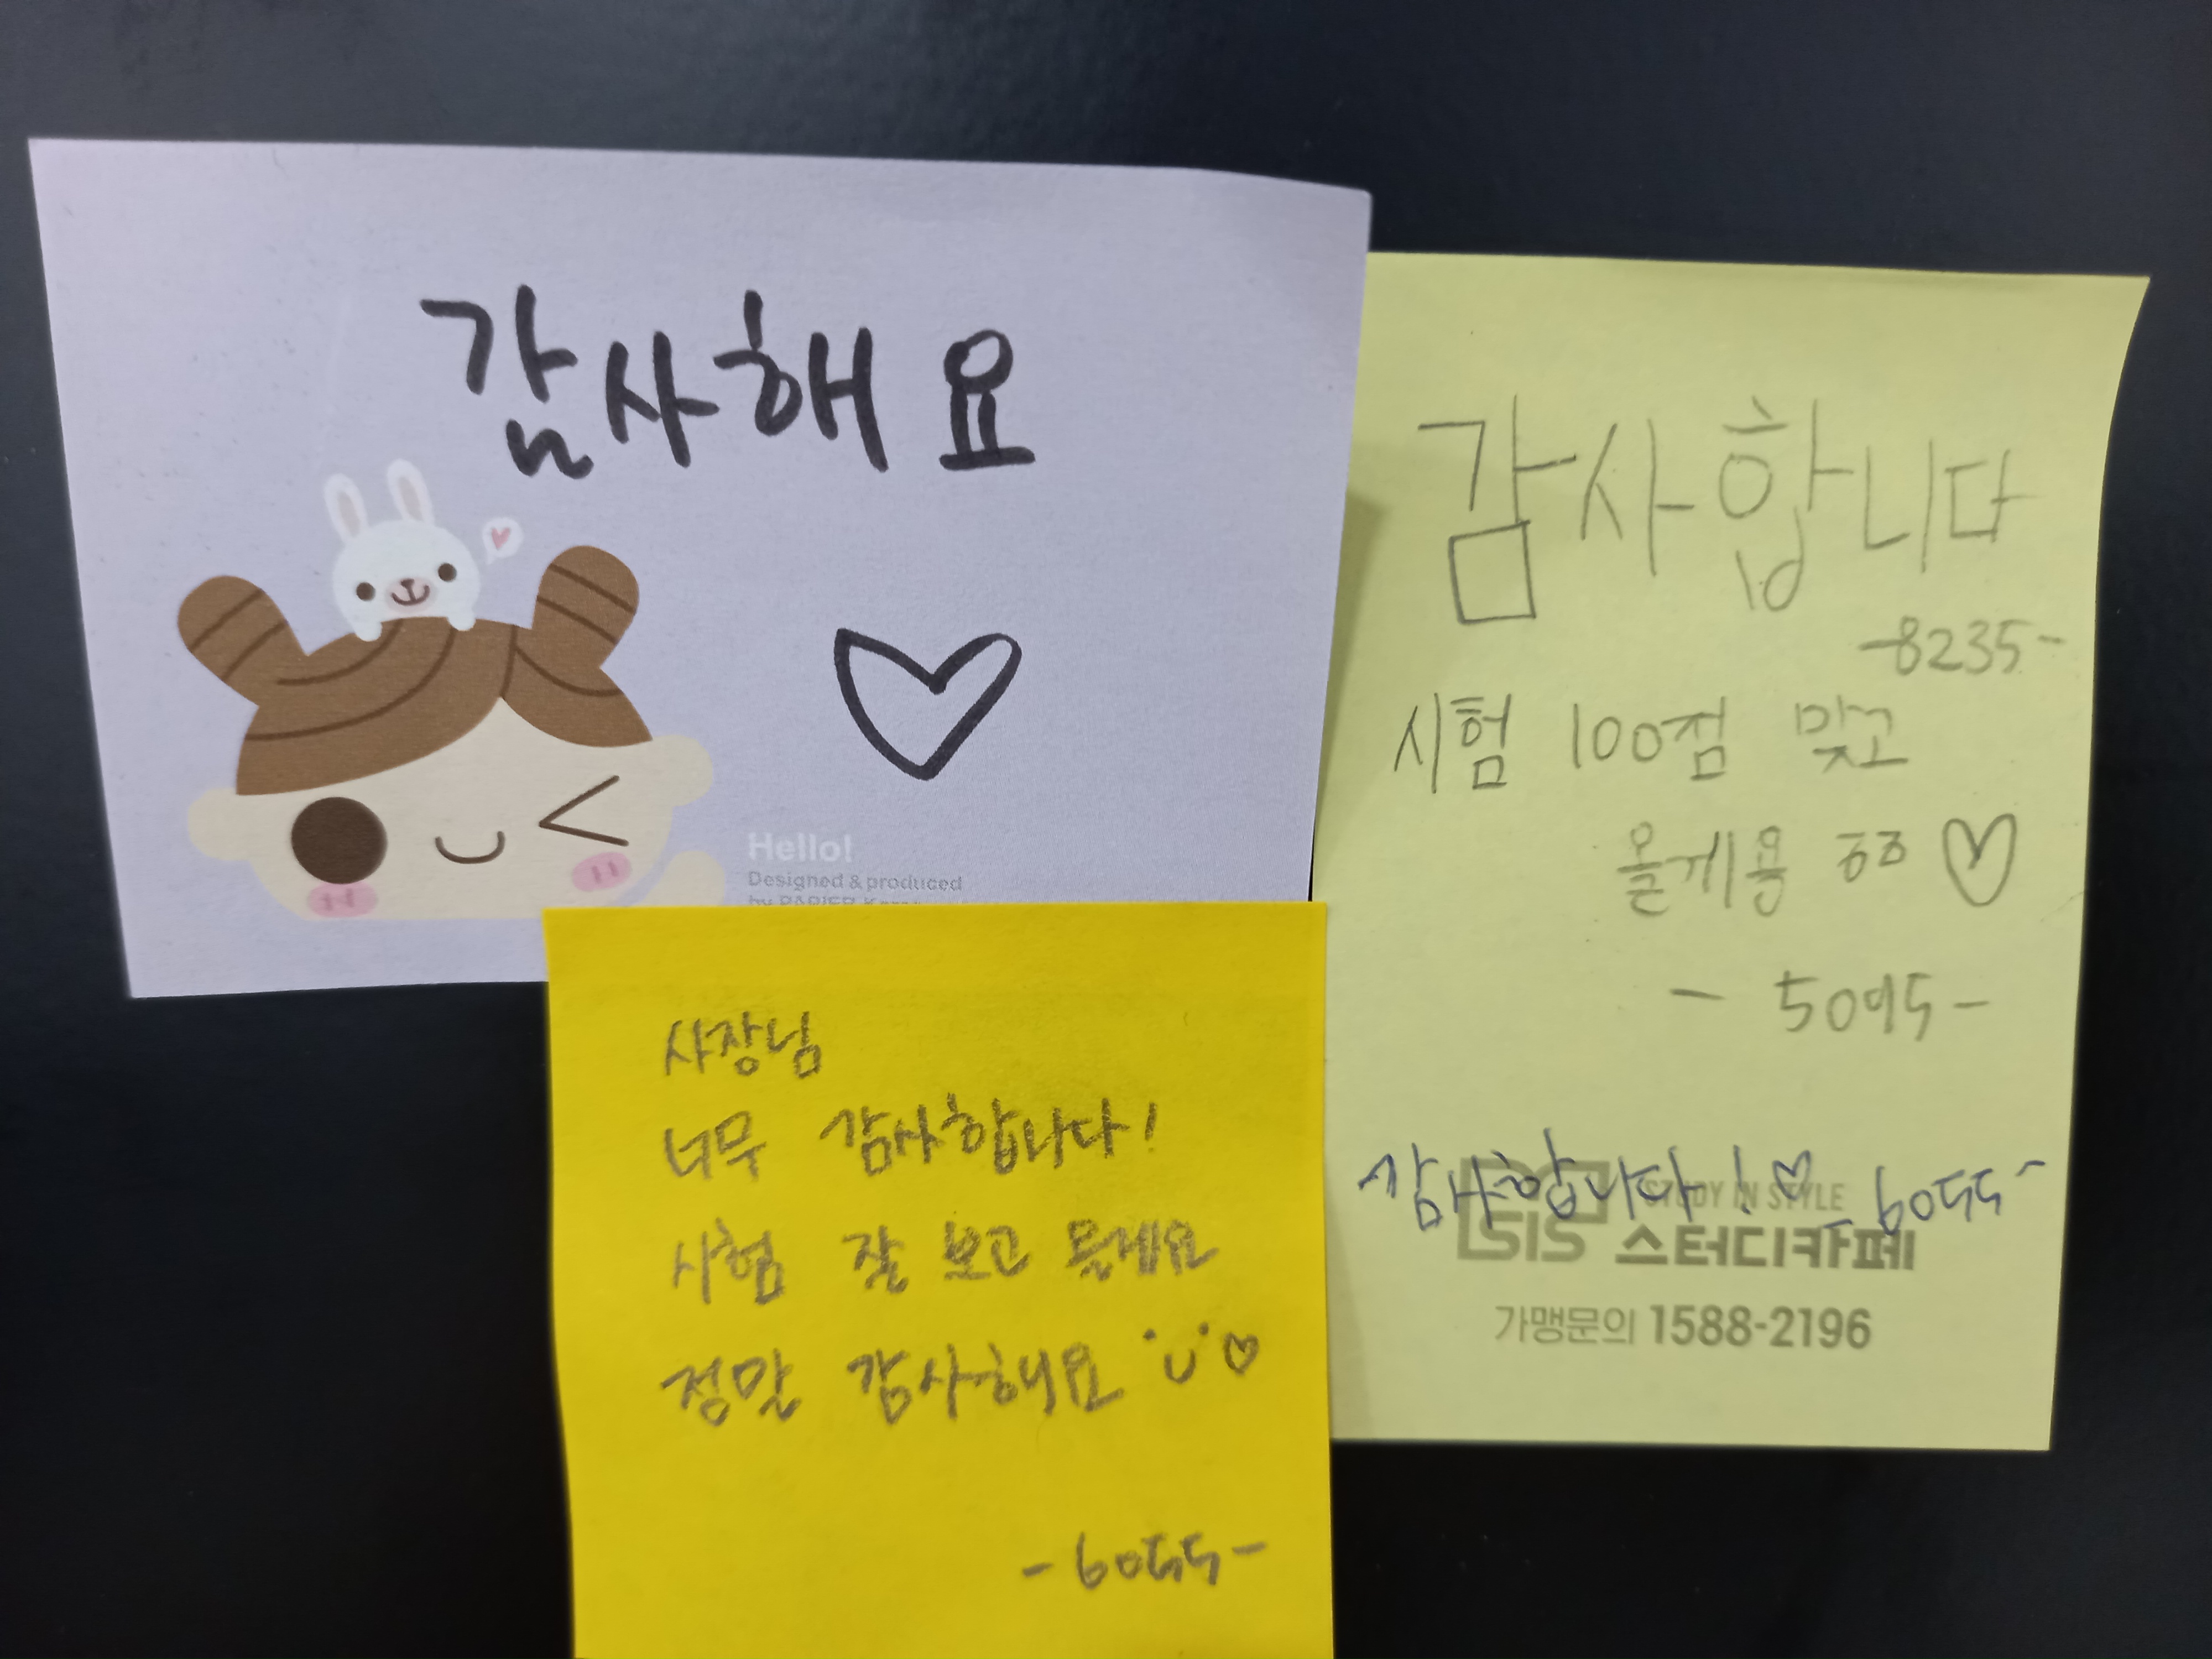 감사해요
Hello!
Designed & produced
감사합니다
-8235-
시험 100점 맞고
올게용 ㅎㅎ ♡
- 5095 -
감사합니다! ♡ - 6055 -
STUDY IN STYLE
SIS 스터디카페
가맹문의 1588-2196
사장님
너무 감사합니다!
시험 잘 보고 올게요
정말 감사해요 ♡
- 6055 -